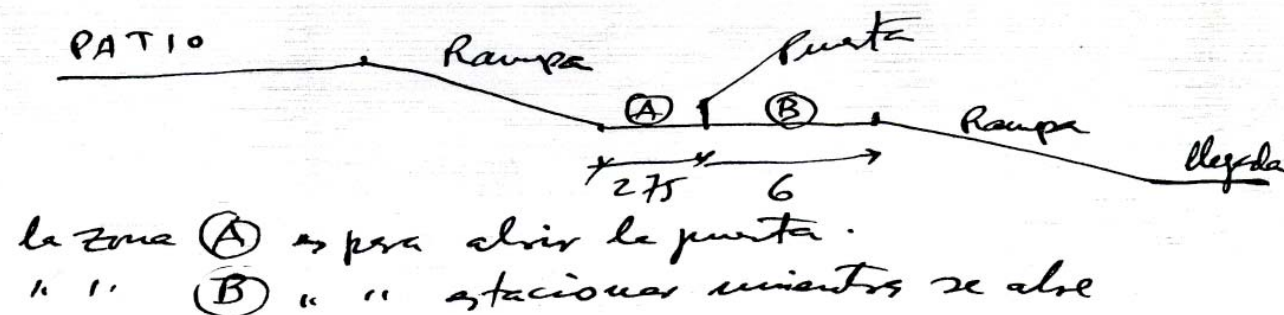 PATIO
Rampa
Puerta
A
B
Rampa
llegada
275
6
la zona A es para abrir la puerta.
" " B " " estacionar mientras se abre